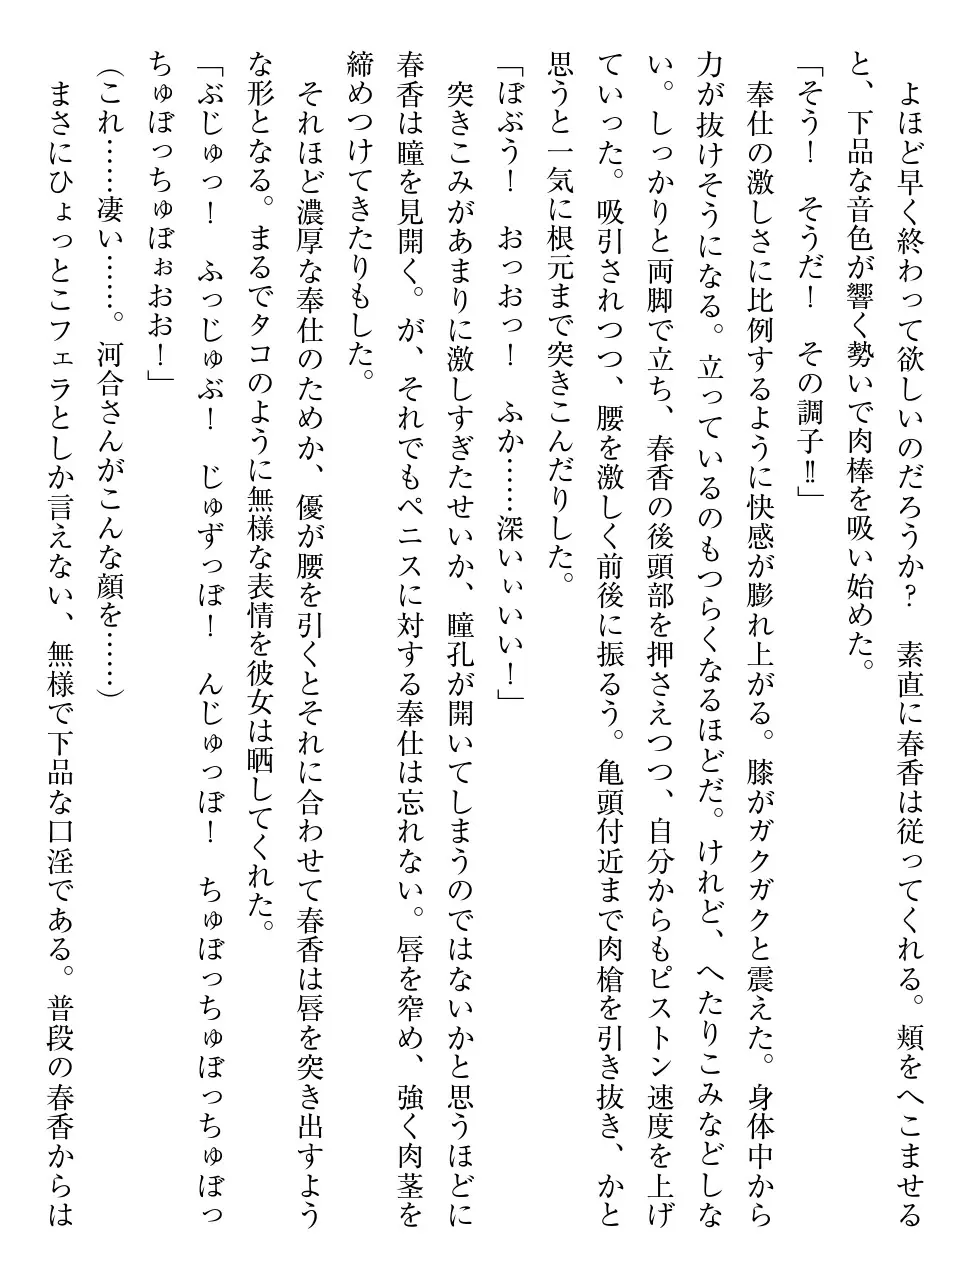 よほど早く終わって欲しいのだろうか？　素直に春香は従ってくれる。頬をへこませる
と、下品な音色が響く勢いで肉棒を吸い始めた。
「そう！　そうだ！　その調子‼」
奉仕の激しさに比例するように快感が膨れ上がる。膝がガクガクと震えた。身体中から
力が抜けそうになる。立っているのもつらくなるほどだ。けれど、へたりこみなどしな
い。しっかりと両脚で立ち、春香の後頭部を押さえつつ、自分からもピストン速度を上げ
ていった。吸引されつつ、腰を激しく前後に振るう。亀頭付近まで肉槍を引き抜き、かと
思うと一気に根元まで突きこんだりした。
「ぼぶう！　おっおっ！　ふか……深いぃいい！」
突きこみがあまりに激しすぎたせいか、瞳孔が開いてしまうのではないかと思うほどに
春香は瞳を見開く。が、それでもペニスに対する奉仕は忘れない。唇を窄め、強く肉茎を
締めつけてきたりもした。
それほど濃厚な奉仕のためか、優が腰を引くとそれに合わせて春香は唇を突き出すよう
な形となる。まるでタコのように無様な表情を彼女は晒してくれた。
「ぶじゅっ！　ふっじゅぶ！　じゅずっぼ！　んじゅっぼ！　ちゅぼっちゅぼっちゅぼっ
ちゅぼっちゅぼぉおお！」
（これ……凄い……。河合さんがこんな顔を……）
まさにひょっとこフェラとしか言えない、無様で下品な口淫である。普段の春香からは